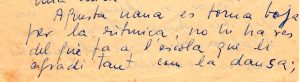 Aquesta nana es torna boja
per la rítmica, no hi ha res
del que fa a l'escola que li
agradi tant com la dansa;